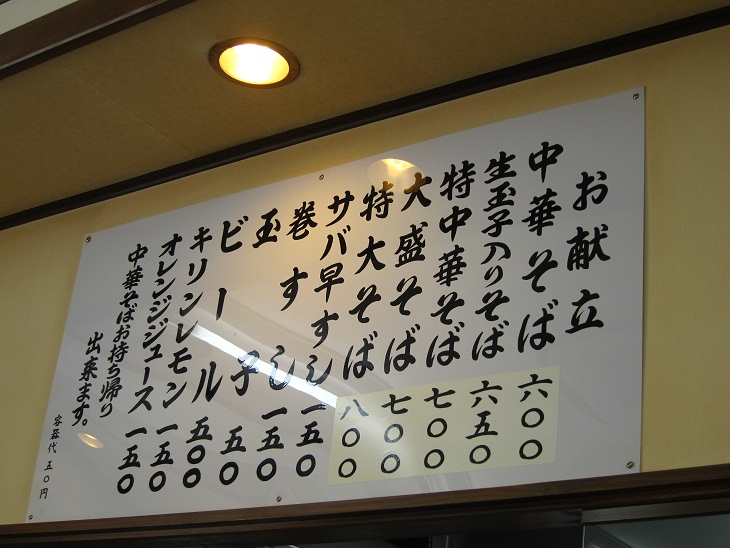 お献立
中華そば 六〇〇
生玉子入りそば 六五〇
特中華そば 七〇〇
大盛そば 七〇〇
特大そば 八〇〇
サバ早すし 一五〇
巻すし 一五〇
玉子 五〇
ビール 五〇〇
キリンレモン 一五〇
オレンジジュース 一五〇
中華そばお持ち帰り
出来ます。
容器代 五〇円